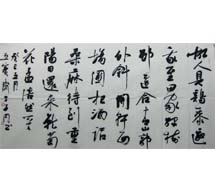 故人具鷄黍邀
我至田家綠樹
村邊合青山郭
外斜開軒面
場圃把酒話
桑麻待到重
陽日還來就菊
花孟浩然